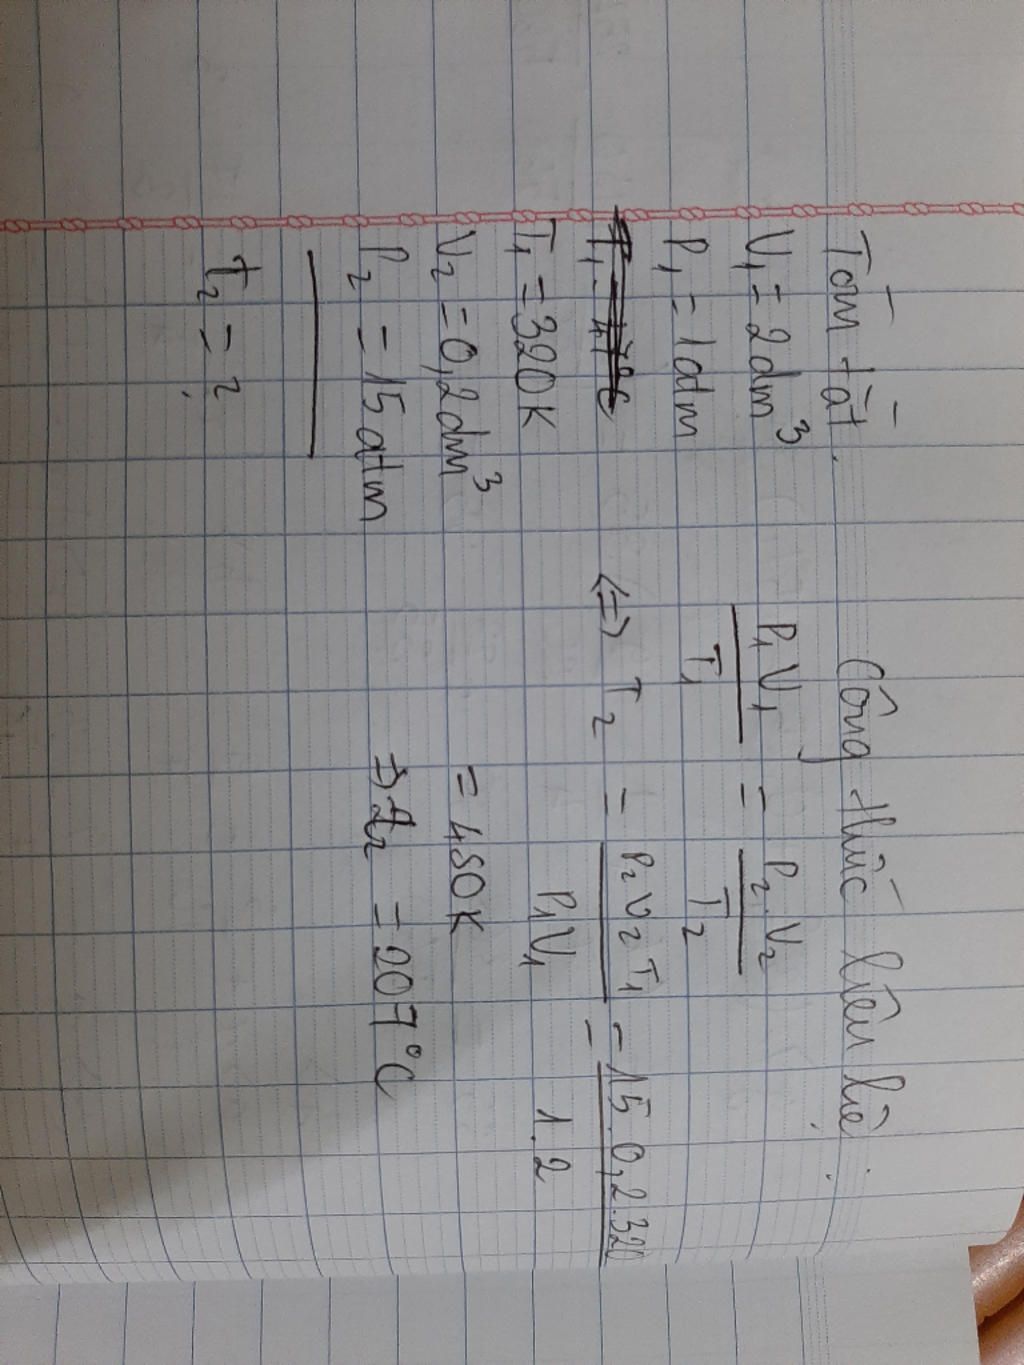 Tóm tắt.
V₁ = 2dm³
P₁ = 1atm
T₁ = 320K
V₂ = 0,2dm³
P₂ = 15atm
t₂ = ?
Công thức liên hệ:
P₁V₁/T₁ = P₂.V₂/T₂
<=> T₂ = P₂V₂T₁/P₁V₁ = 15.0,2.320/1.2
= 480K
=> t₂ = 207°C